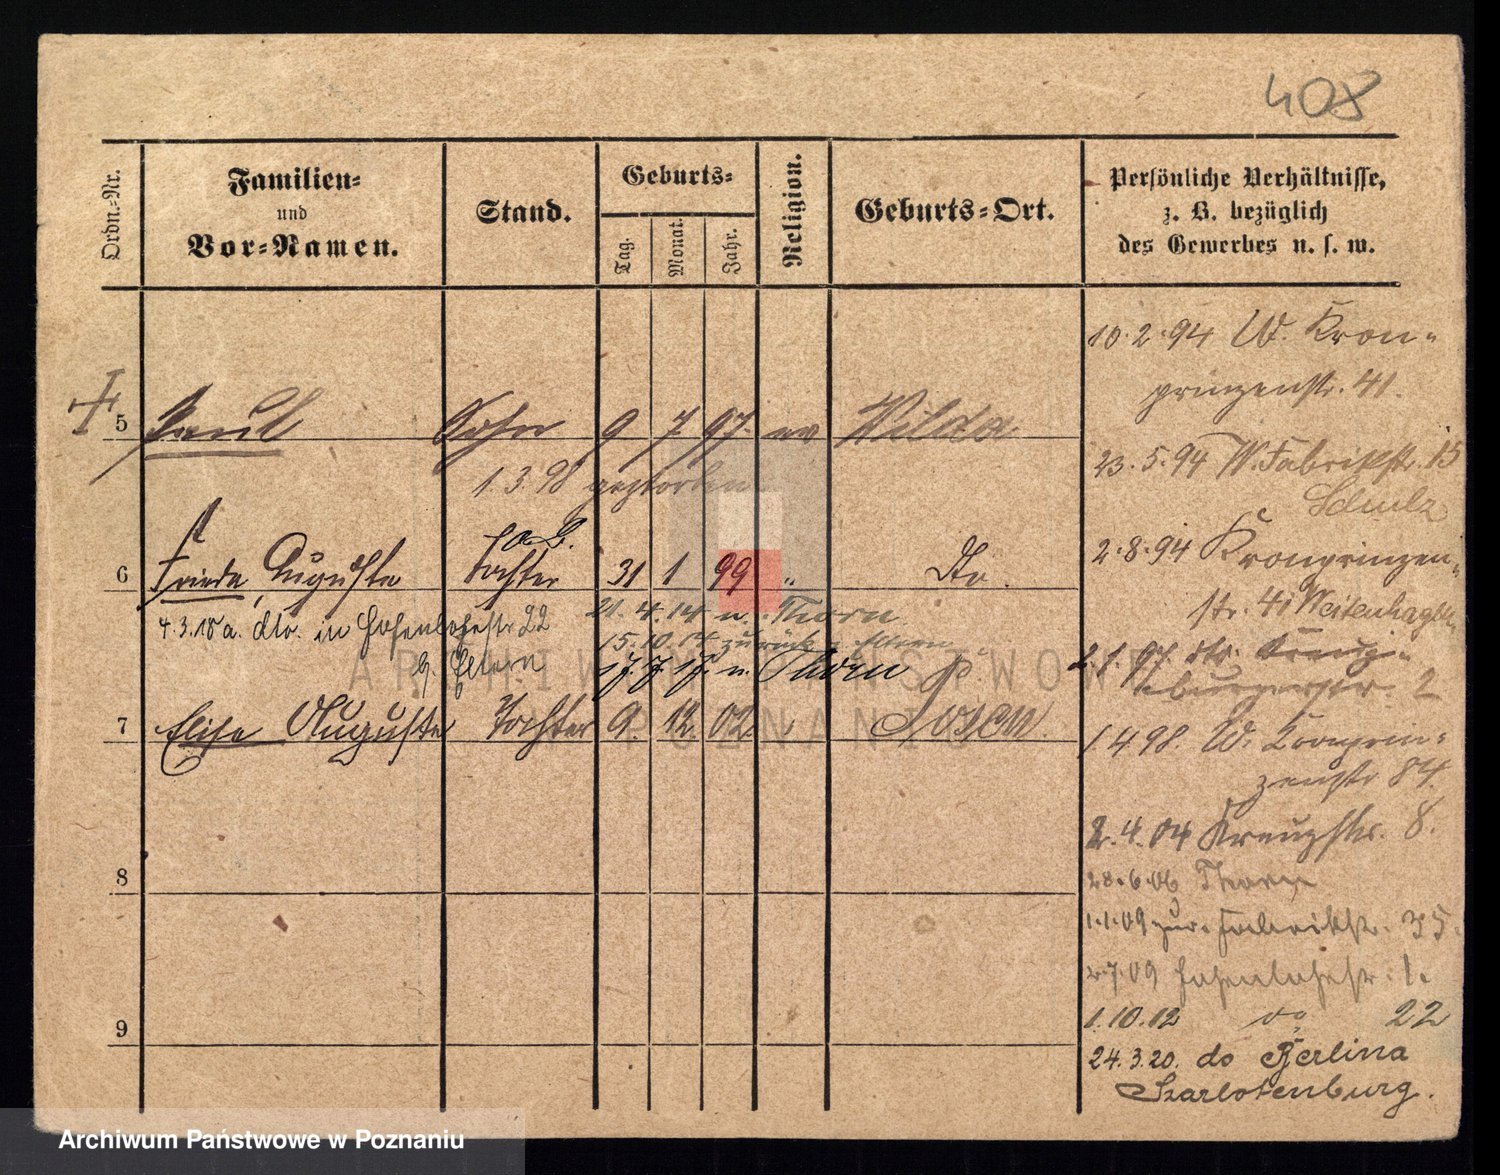 408
Ordn.-Nr.
Familien-
und
Vor-Namen.
Stand.
Geburts-
Tag.
Monat.
Jahr.
Religion.
Geburts-Ort.
Persönliche Verhältnisse,
z. B. bezüglich
des Gewerbes u. s. w.
5 Paul Sohn 9 7 97. ev Wilda
1.3.98 gestorben
6 Frieda, Auguste Tochter 31 1 99 " Do.
4.3.18 a. dto. in Hohenlohestr 22
Eltern
21.4.14 n. Thorn
15.10.14 zurück Eltern
n. Thorn
7 Elise Auguste Tochter 9. 12. 02. " Posen.
8
9
10.2.94 W. Kron-
prinzenstr. 41.
23.5.94 W. Fabrikstr. 15
Schulz
2.8.94 Kronprinzen-
str. 41 Weitenhagen
2.7.97. dto. Kreuz-
burgerstr. 2
1.4.98. W. Kronprin-
zenstr 84.
2.4.04 Kreuzstr. 8.
28.6.06 Thorn
1.1.09 zur. Fabrikstr. 35.
2.7.09 Hohenlohestr. 1.
1.10.12 do 22
24.3.20. do Berlina
Szarlotenburg.
ARCHIWUM PAŃSTWOWE
W POZNANIU
Archiwum Państwowe w Poznaniu